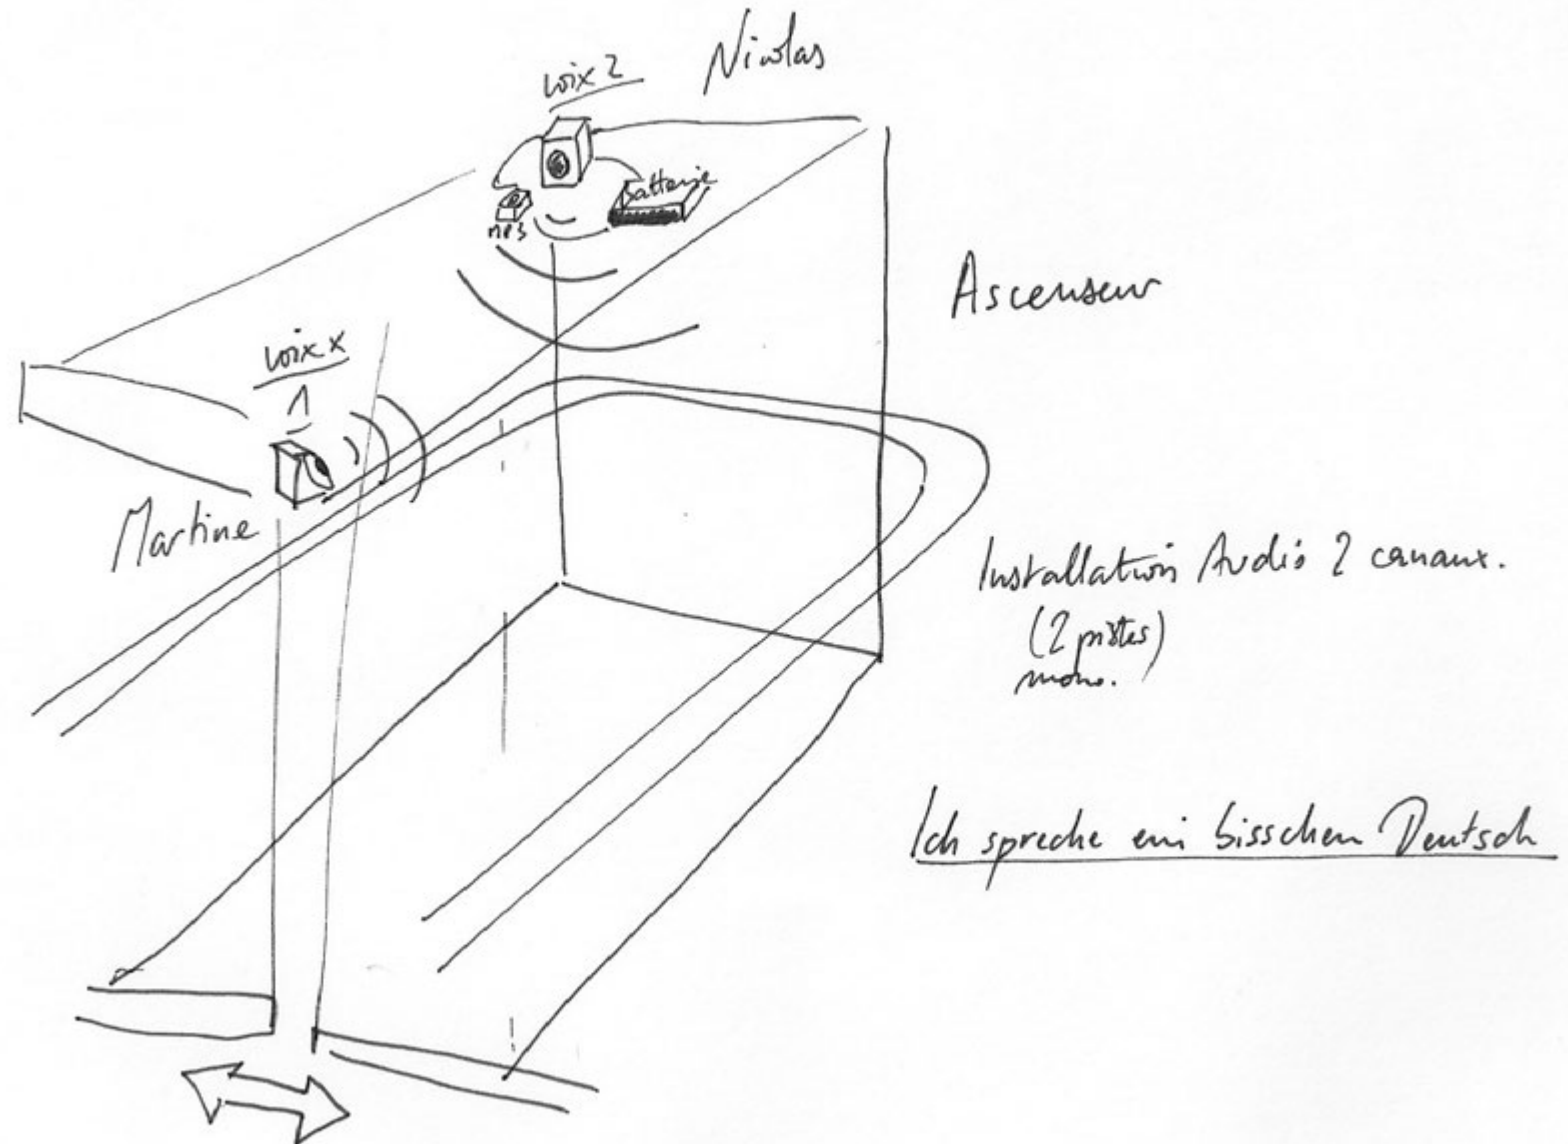 Nicolas
voix 2
Batterie
MP3
Ascenseur
voix x
1
Martine
Installation Audio 2 canaux.
(2 pistes)
mono.
Ich spreche ein bisschen Deutsch